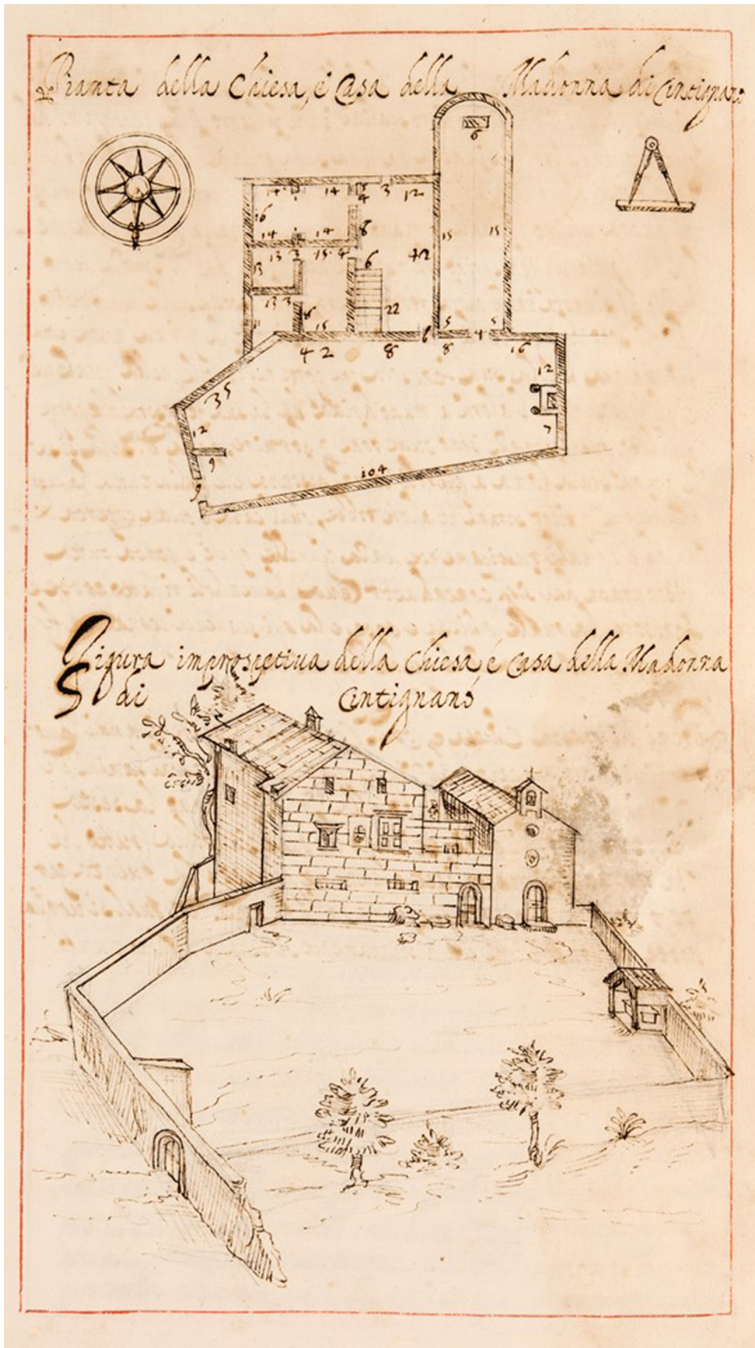 Pianta della Chiesa, e Casa della Madonna di Cintignano
6
14 14 4 3 12
16 8
15 15
14 14
13 2 15 4 6 42
13 3
11 8 15 22 6 5 4 5
4 2 8 8 16
12
35
12 7
9
9
104
Figura improspetiua della Chiesa, é Casa della Madonna
di Cintignano